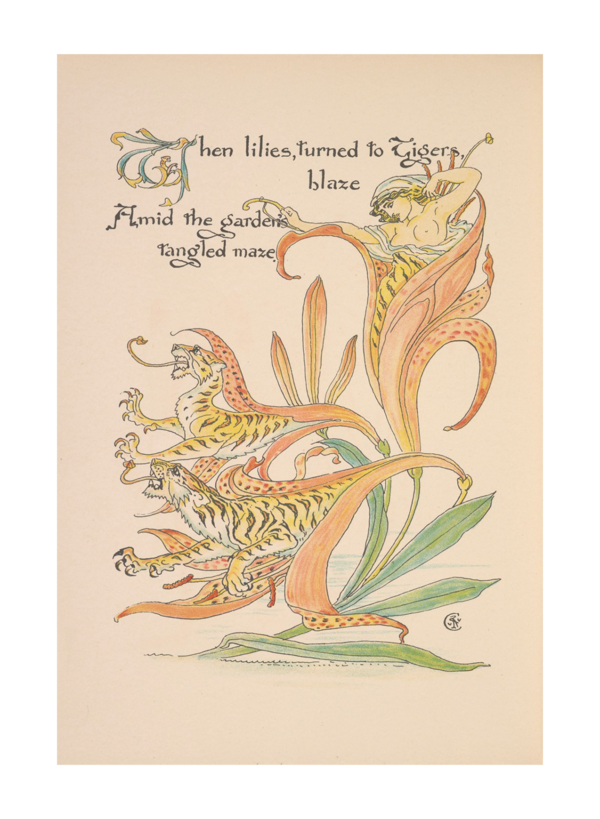 When lilies, turned to Tigers,
blaze
Amid the garden's
tangled maze.